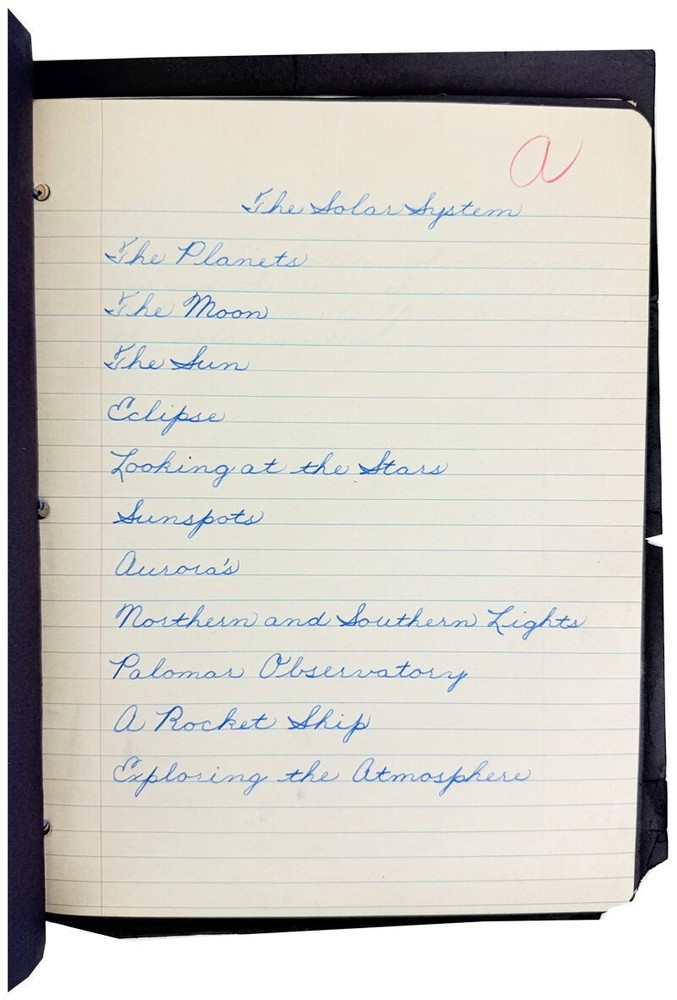 a
The Solar System
The Planets
The Moon
The Sun
Eclipse
Looking at the Stars
Sunspots
Aurora's
Northern and Southern Lights
Palomar Observatory
A Rocket Ship
Exploring the Atmosphere